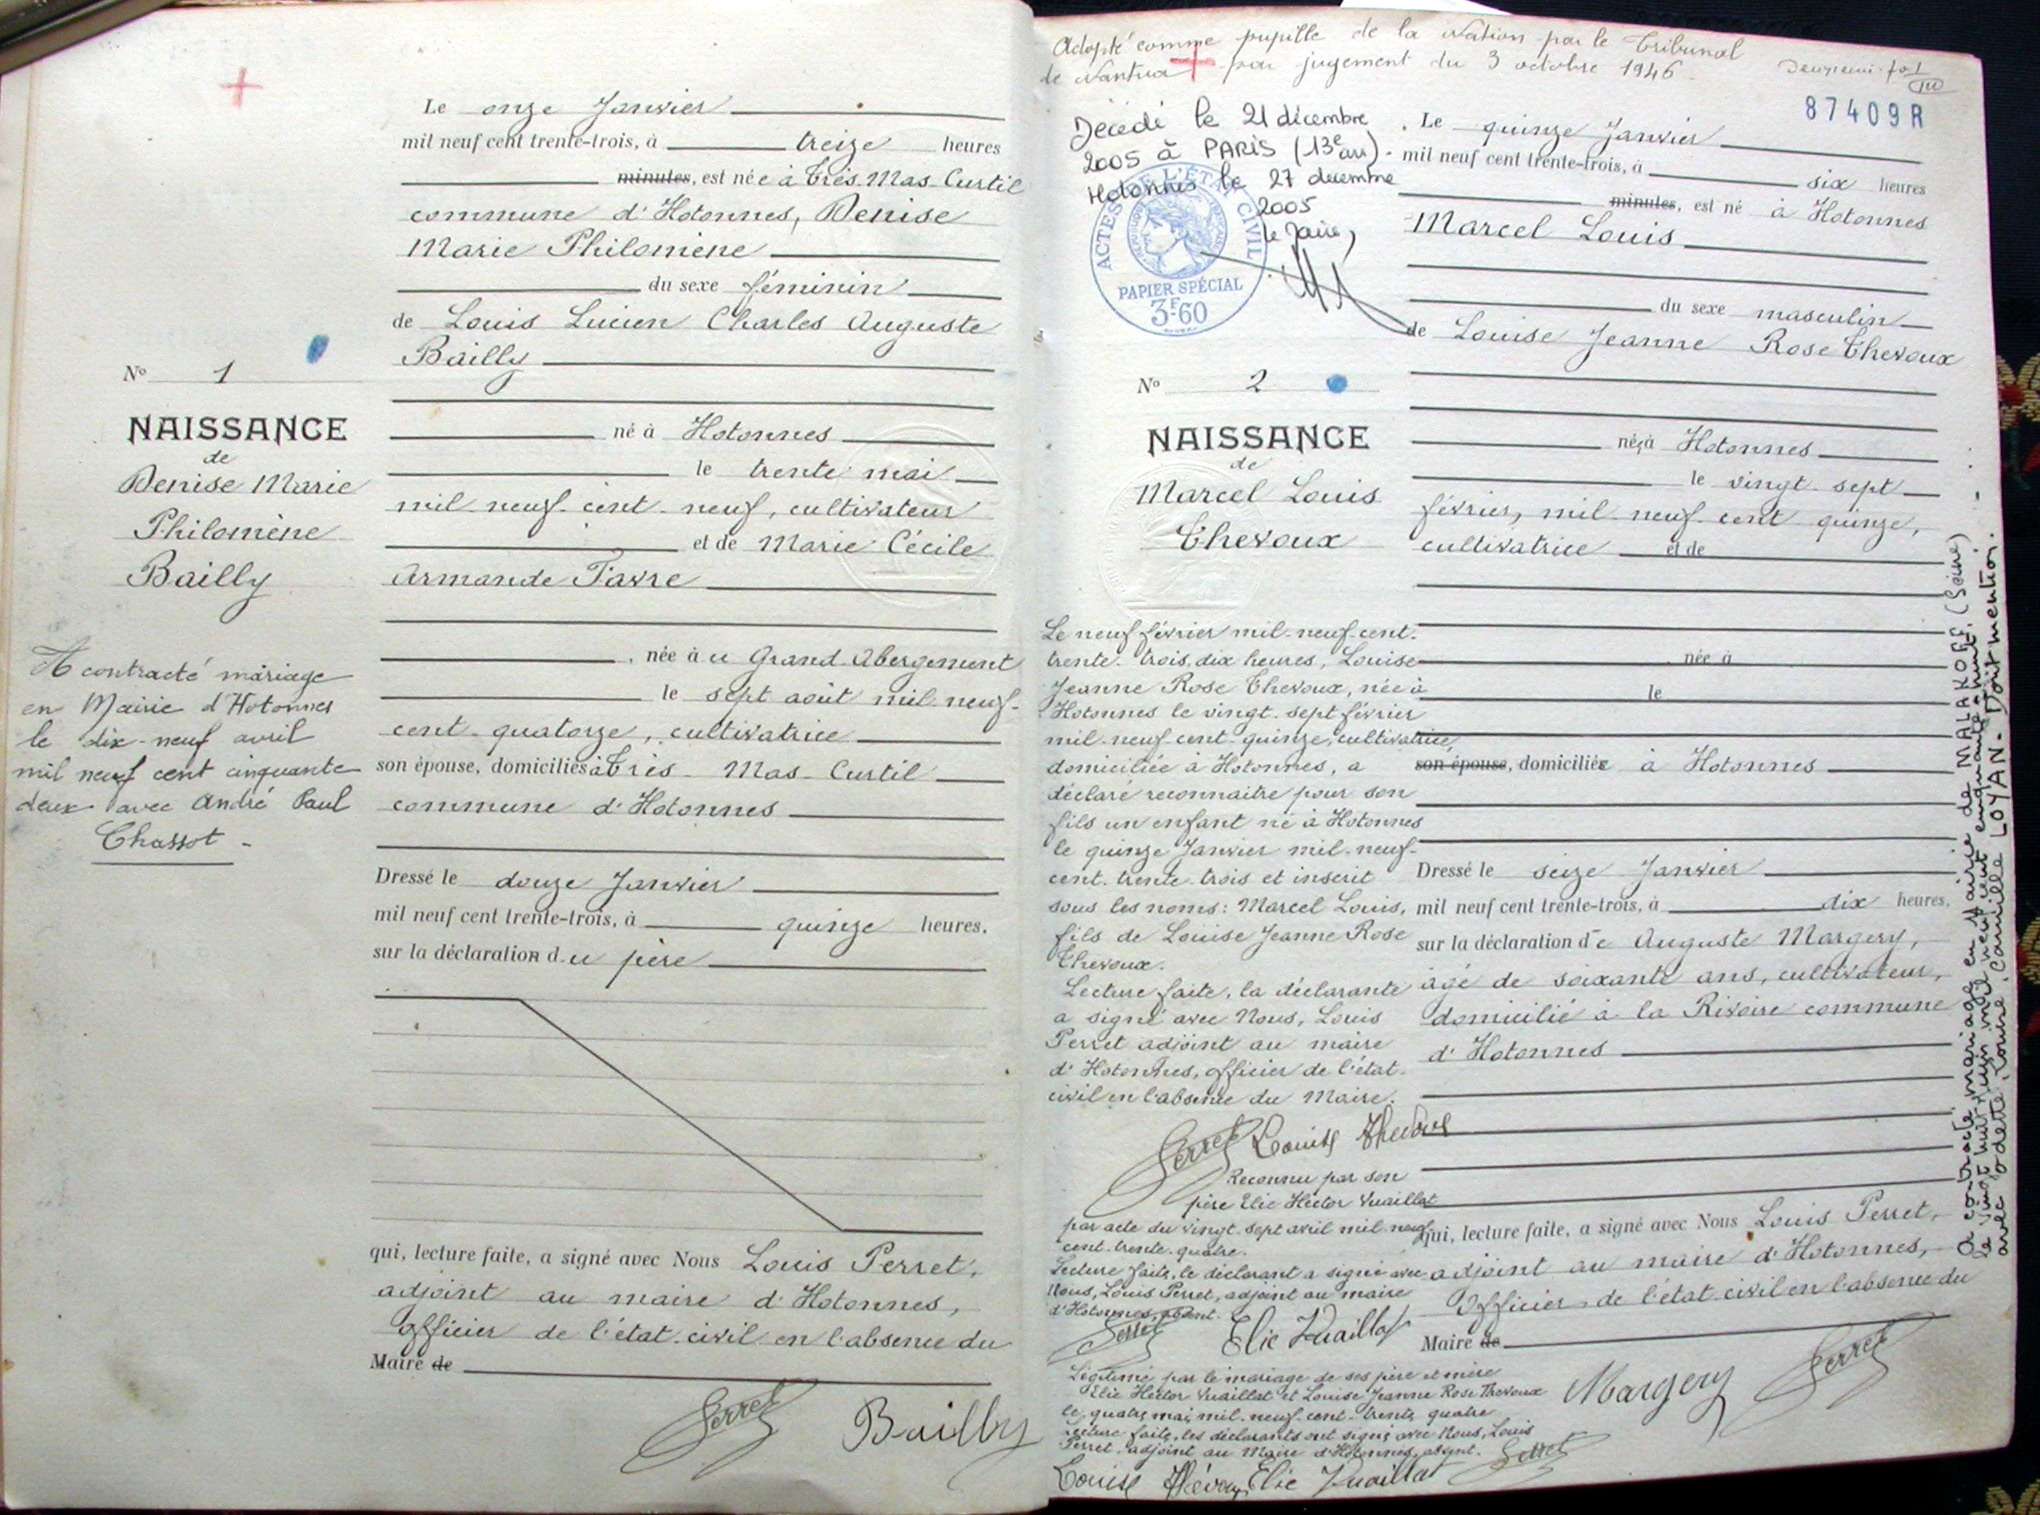 Le onze Janvier
mil neuf cent trente-trois, à treize heures
minutes, est née à Très-Mas-Curtil
commune d'Hotonnes, Denise
Marie Philomène
du sexe féminin
de Louis Lucien Charles Auguste
Bailly
né à Hotonnes
le trente mai
mil neuf cent neuf, cultivateur
et de Marie Cécile
Armande Favre
née à u Grand Abergement
le sept août mil neuf-
cent quatorze, cultivatrice
son épouse, domiciliés à Très-Mas-Curtil
commune d'Hotonnes
Dressé le douze Janvier
mil neuf cent trente-trois, à quinze heures.
sur la déclaration du père
qui, lecture faite, a signé avec Nous Louis Perret,
adjoint au maire d'Hotonnes,
Officier de l'état civil en l'absence du
Maire de
Perret Bailly
N° 1
NAISSANCE
de
Denise Marie
Philomène
Bailly
A contracté mariage
en Mairie d'Hotonnes
le dix-neuf avril
mil neuf cent cinquante
deux avec André Paul
Chassot -
Adopté comme pupille de la Nation par le Tribunal
de Nantua par jugement du 3 octobre 1946
87409R
Décédé le 21 décembre
2005 à PARIS (13e arr) -
Hotonnes le 27 décembre
2005
le Maire,
ACTES DE L'ÉTAT CIVIL
PAPIER SPÉCIAL
3F60
N° 2
NAISSANCE
de
Marcel Louis
Thevoux
Le quinze Janvier
mil neuf cent trente-trois, à six heures
minutes, est né à Hotonnes
Marcel Louis
du sexe masculin
de Louise Jeanne Rose Thevoux
née à Hotonnes
le vingt-sept
février, mil neuf cent quinze,
cultivatrice et de
née à
le
son épouse, domiciliée à Hotonnes
Dressé le seize Janvier
mil neuf cent trente-trois, à dix heures,
sur la déclaration de Auguste Margery,
âgé de soixante ans, cultivateur,
domicilié à la Rivoire commune
d'Hotonnes
qui, lecture faite, a signé avec Nous Louis Perret,
adjoint au maire d'Hotonnes,
Officier de l'état civil en l'absence du
Maire de
Margery Perret
Le neuf février mil-neuf-cent-
trente-trois, dix heures, Louise
Jeanne Rose Thevoux, née à
Hotonnes le vingt-sept février
mil-neuf-cent-quinze, cultivatrice,
domiciliée à Hotonnes, a
déclaré reconnaitre pour son
fils un enfant né à Hotonnes
le quinze Janvier mil-neuf-
cent-trente-trois et inscrit
sous les noms: Marcel Louis,
fils de Louise Jeanne Rose
Thevoux.
Lecture faite, la déclarante
a signé avec Nous, Louis
Perret adjoint au maire
d'Hotonnes, officier de l'état-
civil en l'absence du Maire.
Perret Louise Thevoux
Reconnu par son
père Elie Hector Vuaillat
par acte du vingt-sept avril mil neuf
cent-trente-quatre.
Lecture faite, le déclarant a signé avec
Nous, Louis Perret, adjoint au maire
d'Hotonnes, absent.
Perret Elie Vuaillat
Légitimé par le mariage de ses père et mère
Elie Hector Vuaillat et Louise Jeanne Rose Thevoux
le quatre mai mil-neuf-cent-trente quatre
Lecture faite, les déclarants ont signé avec Nous, Louis
Perret, adjoint au Maire d'Hotonnes, absent. Perret
Louise Thévoux Elie Vuaillat
A contracté mariage en Mairie de MALAKOFF (Seine)
le vingt huit juin mil neuf cent cinquante huit
avec Odette, Louise, Camille LOYAN - Dont mention.